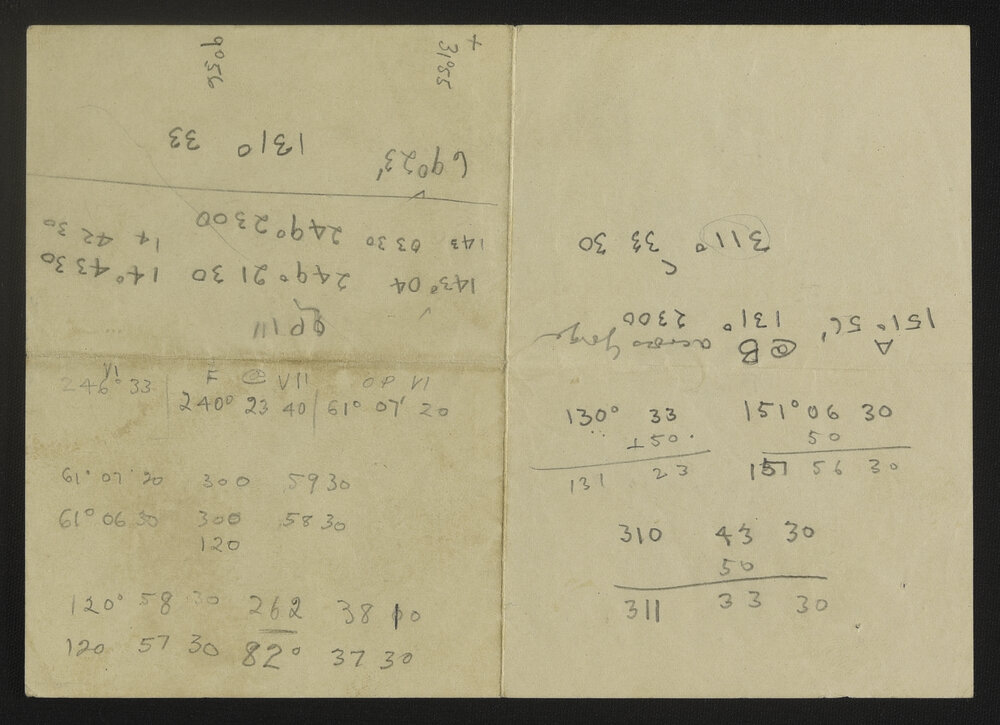 9°56
+ 31°55
131° 33
69°23'
143 03 30 249° 23 00 14 42 30
143° 04 249° 21 30 14° 43 30
OP III
VI
246° 33 F @ VII OP VI
240° 23 40 61° 07' 20
61° 07 20 300 59 30
61° 06 30 300 58 30
120
120° 58 30 262 38 00
120 57 30 82° 37 30
311° 33 30
A @ B across Gorge
151° 56' 131° 23 00
130° 33 151° 06 30
+ 50 50
131 23 151 56 30
310 43 30
50
311 33 30